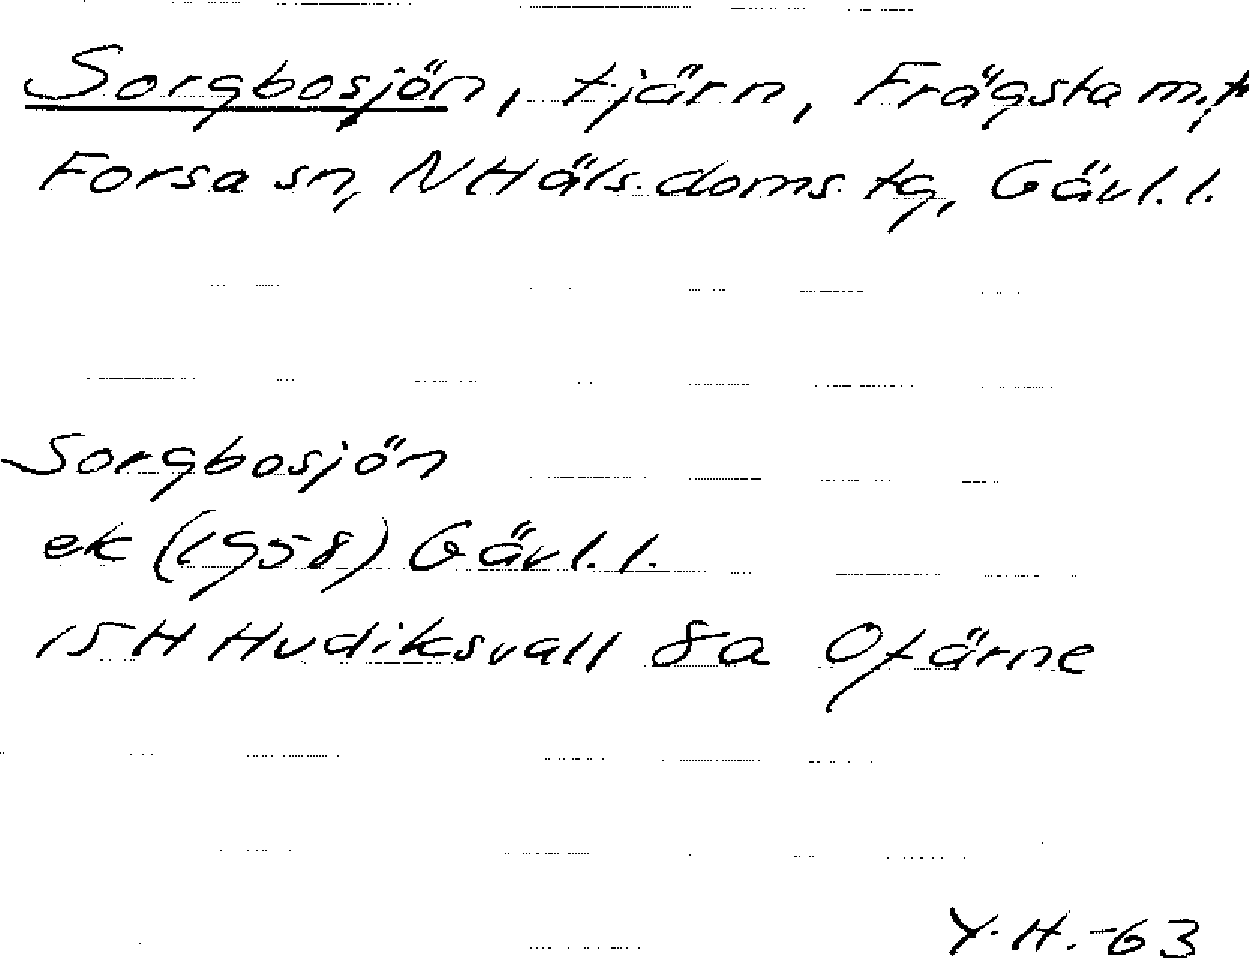 Sorgbosjön, tjärn, Frägsta m.fl
Forsa sn, N Häls. doms. tg, Gävl. l.
Sorgbosjön
ek (1958) Gävl. l.
15H Hudiksvall 8a Ofärne
Y.H.-63